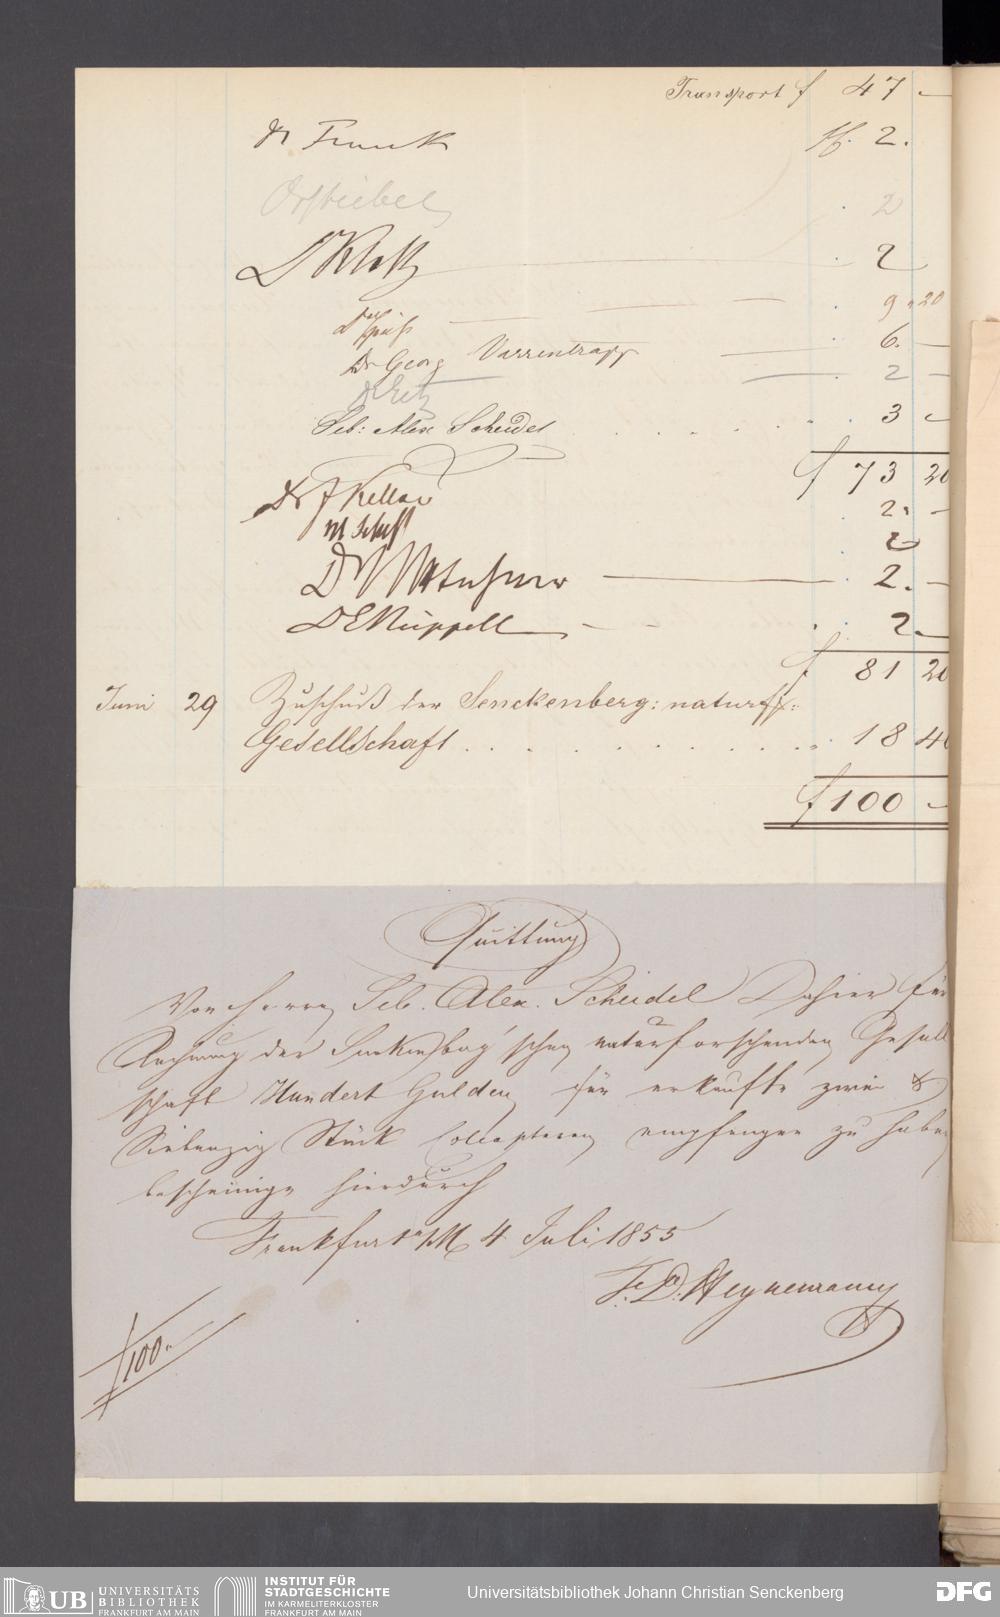 Transport f 47 —
Dr Funck ff. 2.
Dr Stiebel 2
Dr Kloß 2
9 „ 20
Dr Georg Varrentrapp 6. —
2 —
Seb: Alex Scheidel 3 —
f 73 20
Dr F Keller 2. —
M Schiff 2
Dr 2. —
Dr E Rüppell 2 —
f 81 20
Juni 29 Zuschuß der Senckenberg: naturf:
Gesellschaft . . . . . . . . . . 18 40
f 100 —
Quittung
Von Herrn Seb. Alex. Scheidel Dahier für
Rechnung der Senkenberg'schen naturforschenden Gesell
schaft Hundert Gulden für erkaufte zwei &
Siebenzig Stück Coleopteren empfangen zu haben
bescheinige hierdurch
Frankfurt a/M 4 Juli 1855
F. D. Heynemann
f 100.-
UB UNIVERSITÄTS
BIBLIOTHEK
FRANKFURT AM MAIN
INSTITUT FÜR
STADTGESCHICHTE
IM KARMELITERKLOSTER
FRANKFURT AM MAIN
Universitätsbibliothek Johann Christian Senckenberg
DFG